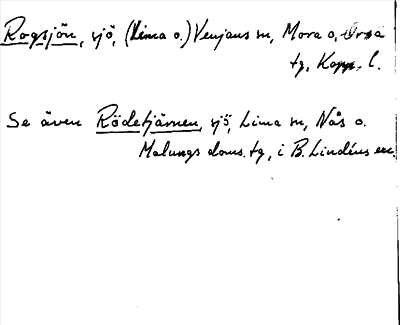 Rogsjön, sjö, (Lima o.) Venjans sn, Mora o. Orsa
tg, Kopp. l.
Se även Rödetjärnen, sjö, Lima sn, Nås o.
Malungs doms. tg, i B. Lindéns exc.